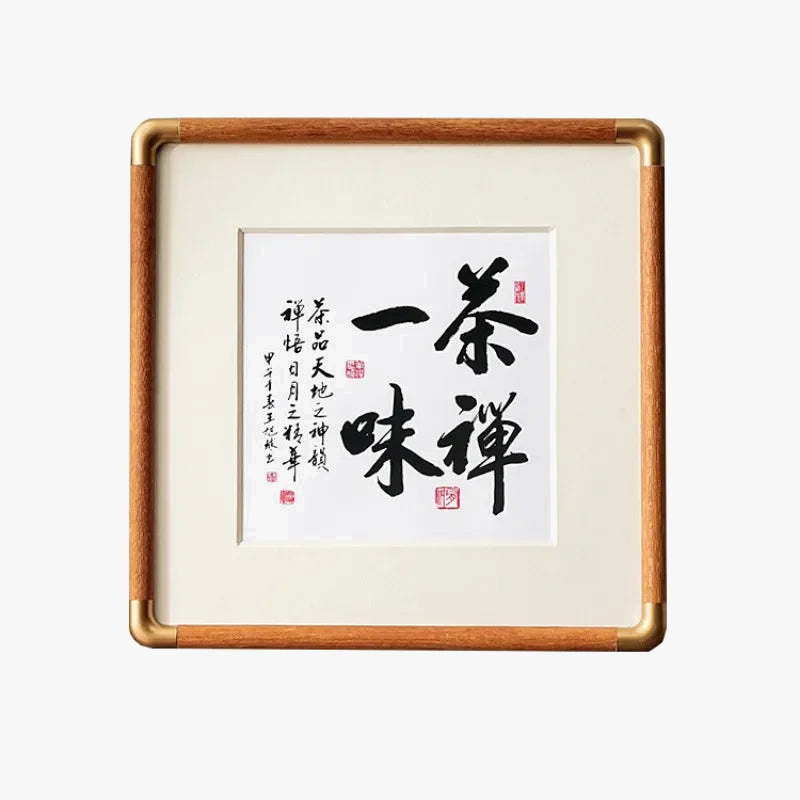 茶禅
一味
茶品天地之神韻
禅悟日月之精華
甲午年春王